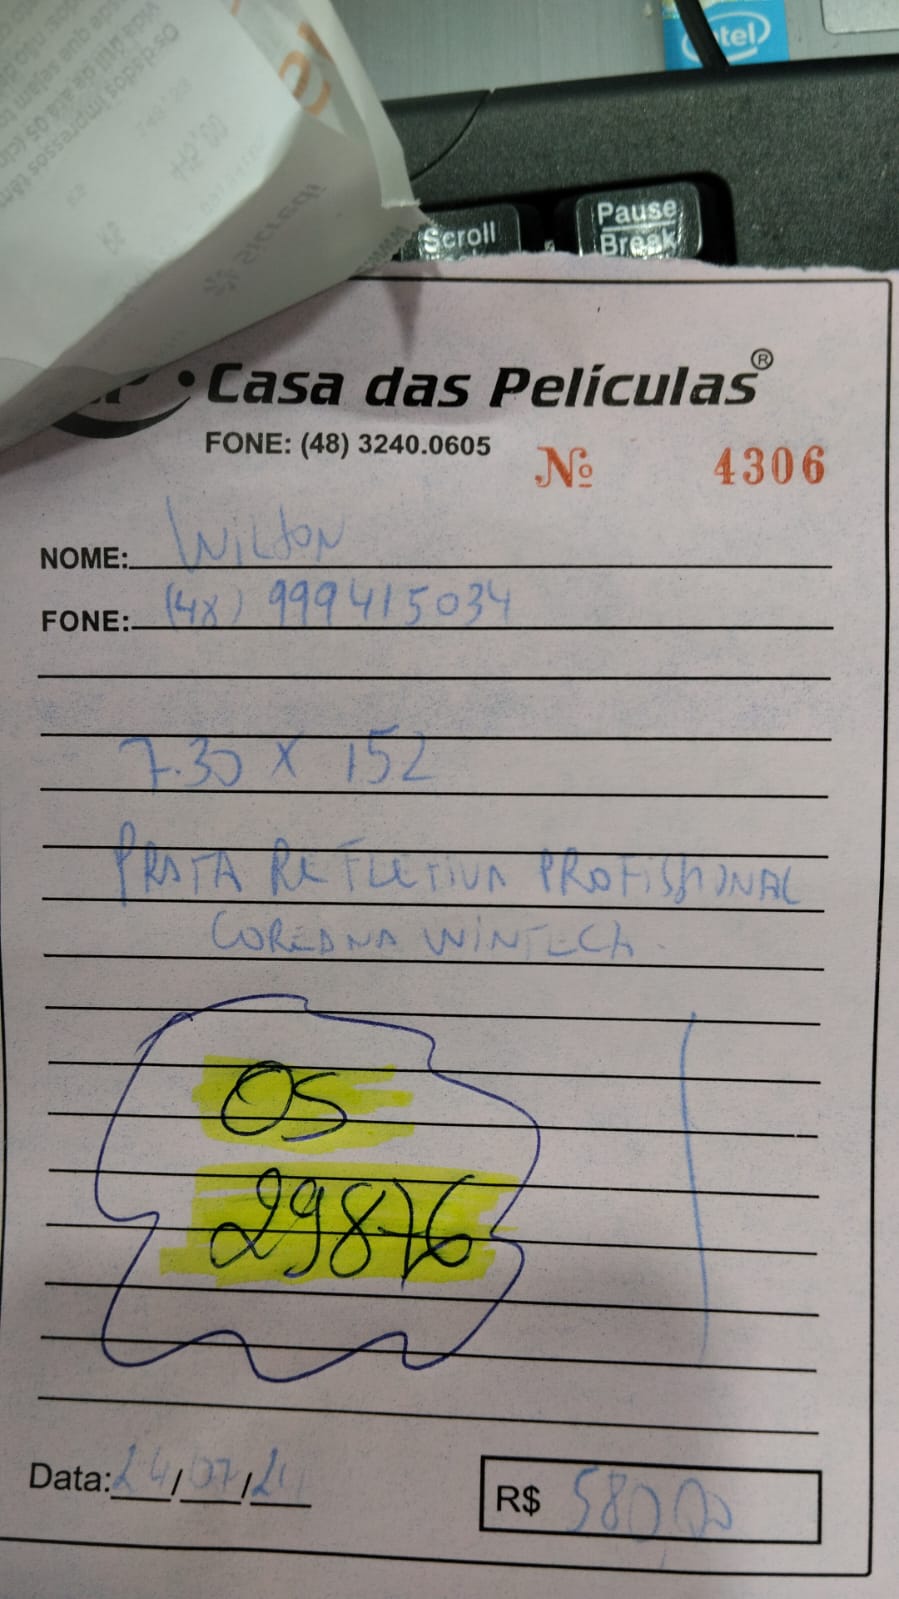 intel
Scroll
Pause
Break
Casa das Películas®
FONE: (48) 3240.0605
Nº 4306
NOME: Wilson
FONE: (48) 999415034
7.30 X 152
PRATA REFLETIVA PROFISSIONAL
WINTECH.
OS
29876
Data: 24/07/24
R$ 580,00